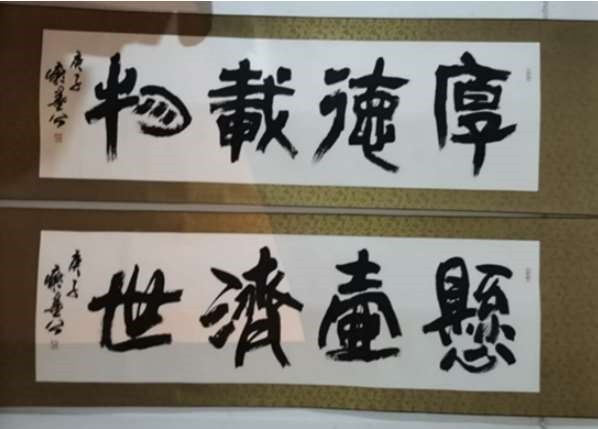 厚德載物
庚子
懸壺濟世
庚子